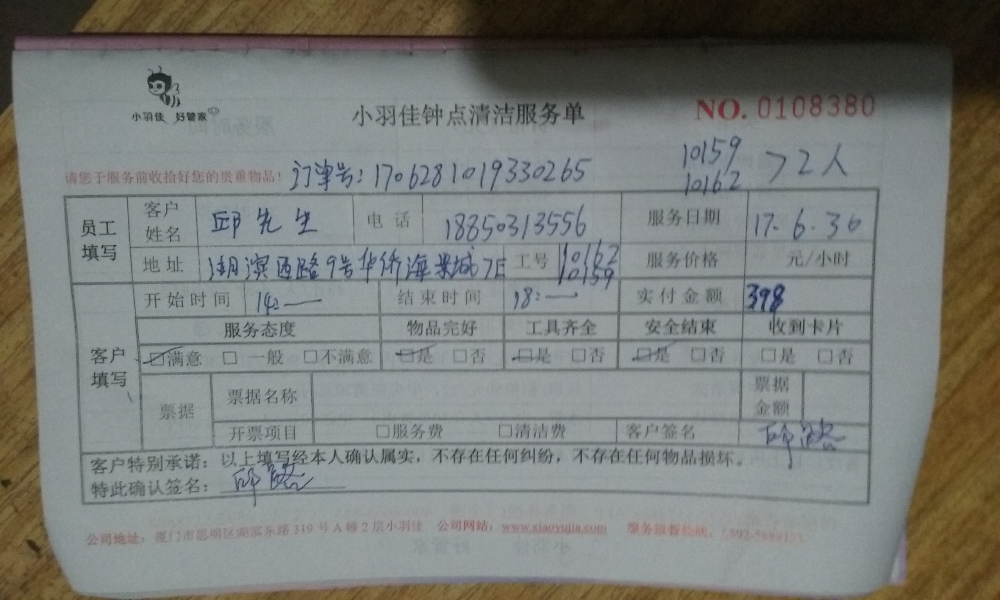 小羽佳 好管家
小羽佳钟点清洁服务单
NO. 0108380
10159
10162
>2人
请您于服务前收拾好您的贵重物品! 订单号: 1706281019330265
员工填写 客户姓名 邱先生 电话 18850313556 服务日期 17.6.30
地址 湖滨西路9号华侨海景城7E 工号 10162 10159 服务价格 元/小时
客户填写 开始时间 14:— 结束时间 18:— 实付金额 398
服务态度 物品完好 工具齐全 安全结束 收到卡片
☑满意 □一般 □不满意 ☑是 □否 ☑是 □否 ☑是 □否 □是 □否
票据 票据名称 票据金额
开票项目 □服务费 □清洁费 客户签名
客户特别承诺: 以上填写经本人确认属实,不存在任何纠纷,不存在任何物品损坏。
特此确认签名:
公司地址: 厦门市思明区南滨东路319号A幢2层小羽佳 公司网站: www.xiaoyujia.com 服务监督热线: